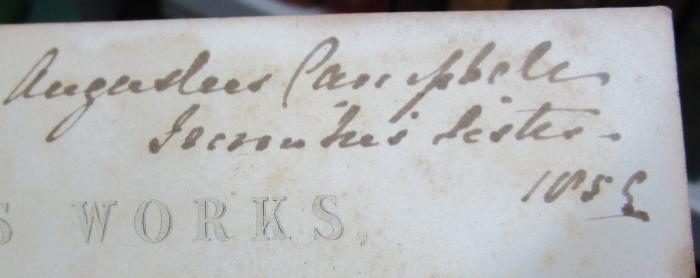 Augustus Campbell
from his sister.
185
S WORKS,